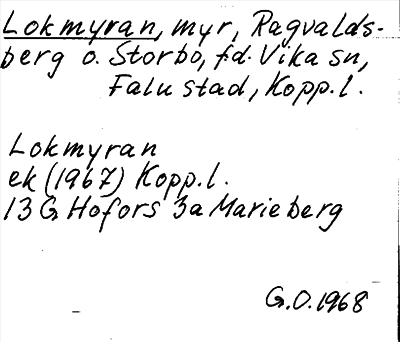 Lokmyran, myr, Ragvalds-
berg o. Storbo, fd. Vika sn,
Falu stad, Kopp.l.
Lokmyran
ek (1967) Kopp.l.
13 G Hofors 3a Marieberg
G.O. 1968